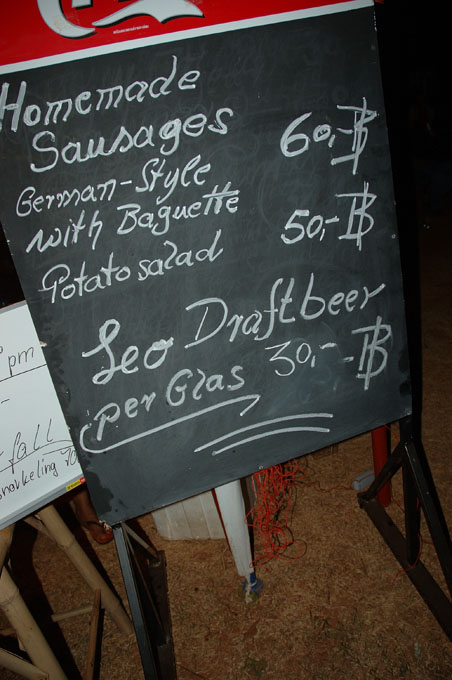 Homemade
Sausages 60,-฿
German-Style
with Baguette 50,-฿
Potatosalad
Leo Draftbeer
per Glas 30,-฿
pm
fall